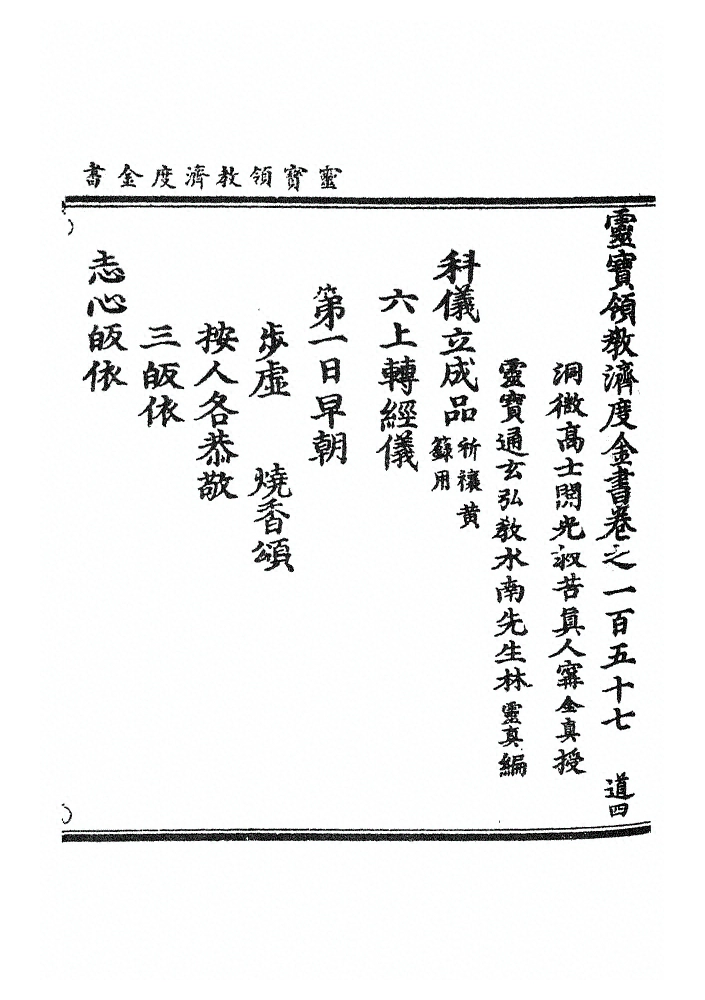 靈寶領教濟度金書
靈寶領教濟度金書卷之一百五十七 道四
洞微高士開光救苦真人甯全真授
靈寶通玄弘教水南先生林靈真編
科儀立成品祈禳黃
籙用
六上轉經儀
第一日早朝
步虛 燒香頌
按人各恭敬
三皈依
志心皈依